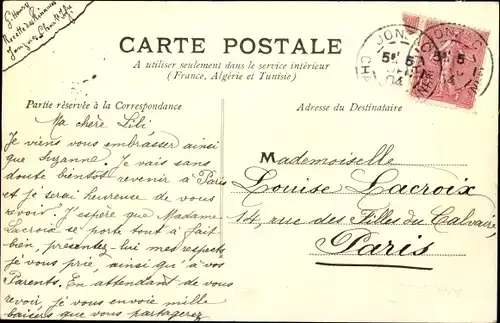 CARTE POSTALE
A utiliser seulement dans le service intérieur
(France, Algérie et Tunisie)
Partie réservée à la Correspondance
Adresse du Destinataire
Ma chère Lili
Je viens vous embrasser ainsi
que Suzanne. Je vais sans
doute bientot revenir à Paris
et je serai heureuse de vous
revoir. J'espère que Madame
Lacroix se porte tout à fait
bien, présentez lui mes respects
je vous prie, ainsi qu'à vos
Parents. En attendant de vous
revoir, je vous envoie mille
baisers que vous partagerez
Mademoiselle
Louise Lacroix
14, rue des Filles du Calvaire
Paris
JONZAC
5E 5
04